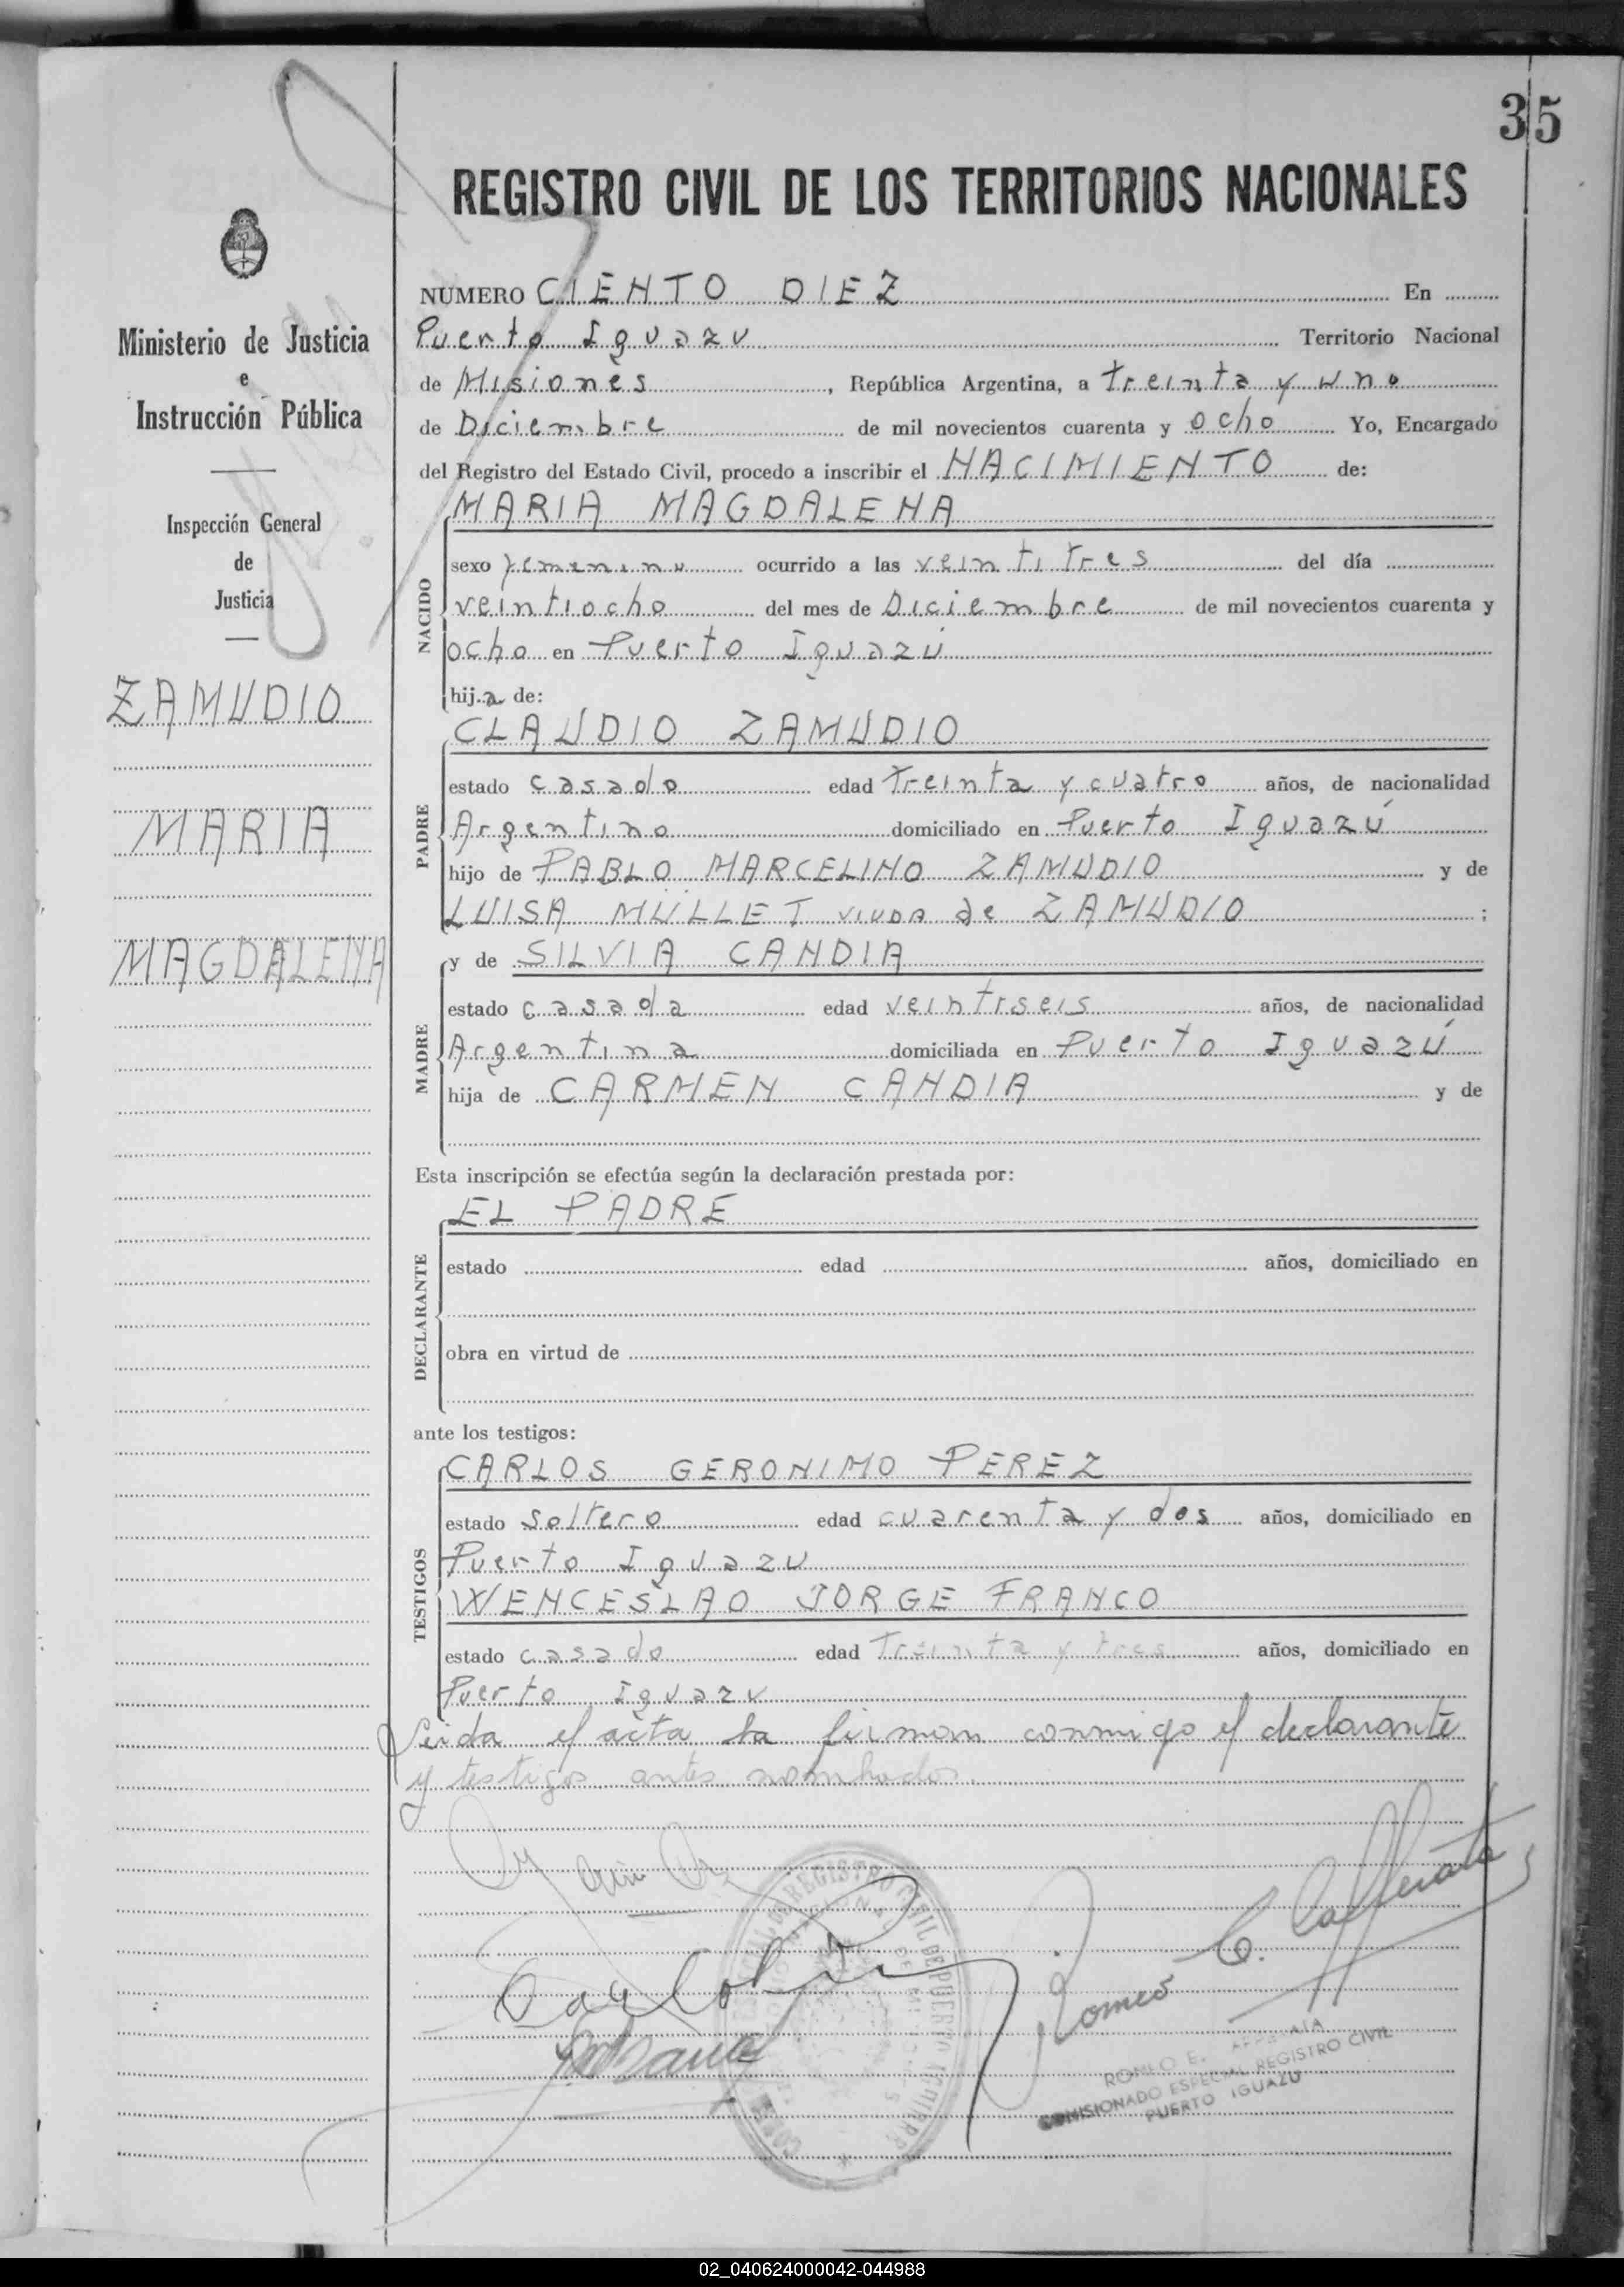 35
REGISTRO CIVIL DE LOS TERRITORIOS NACIONALES
Ministerio de Justicia
e
Instrucción Pública
Inspección General
de
Justicia
ZAMUDIO
MARIA
MAGDALENA
NUMERO CIENTO DIEZ En
Puerto Iguazu Territorio Nacional
de Misiones, República Argentina, a treinta y uno
de Diciembre de mil novecientos cuarenta y ocho Yo, Encargado
del Registro del Estado Civil, procedo a inscribir el NACIMIENTO de:
NACIDO
MARIA MAGDALENA
sexo femenino ocurrido a las veintitres del día
veintiocho del mes de Diciembre de mil novecientos cuarenta y
ocho en Puerto Iguazú
hija de:
PADRE
CLAUDIO ZAMUDIO
estado casado edad treinta y cuatro años, de nacionalidad
Argentino domiciliado en Puerto Iguazú
hijo de PABLO MARCELINO ZAMUDIO y de
LUISA MÜLLET viuda de ZAMUDIO ;
MADRE
y de SILVIA CANDIA
estado casada edad veintiseis años, de nacionalidad
Argentina domiciliada en Puerto Iguazú
hija de CARMEN CANDIA y de
Esta inscripción se efectúa según la declaración prestada por:
DECLARANTE
EL PADRE
estado edad años, domiciliado en
obra en virtud de
ante los testigos:
TESTIGOS
CARLOS GERONIMO PEREZ
estado soltero edad cuarenta y dos años, domiciliado en
Puerto Iguazu
WENCESLAO JORGE FRANCO
estado casado edad treinta y tres años, domiciliado en
Puerto Iguazu
Leida el acta la firman conmigo el declarante
y testigos antes nombrados.
Romeo E. Cafferata
ROMEO E.
COMISIONADO ESPECIAL REGISTRO CIVIL
PUERTO IGUAZU
02_040624000042-044988